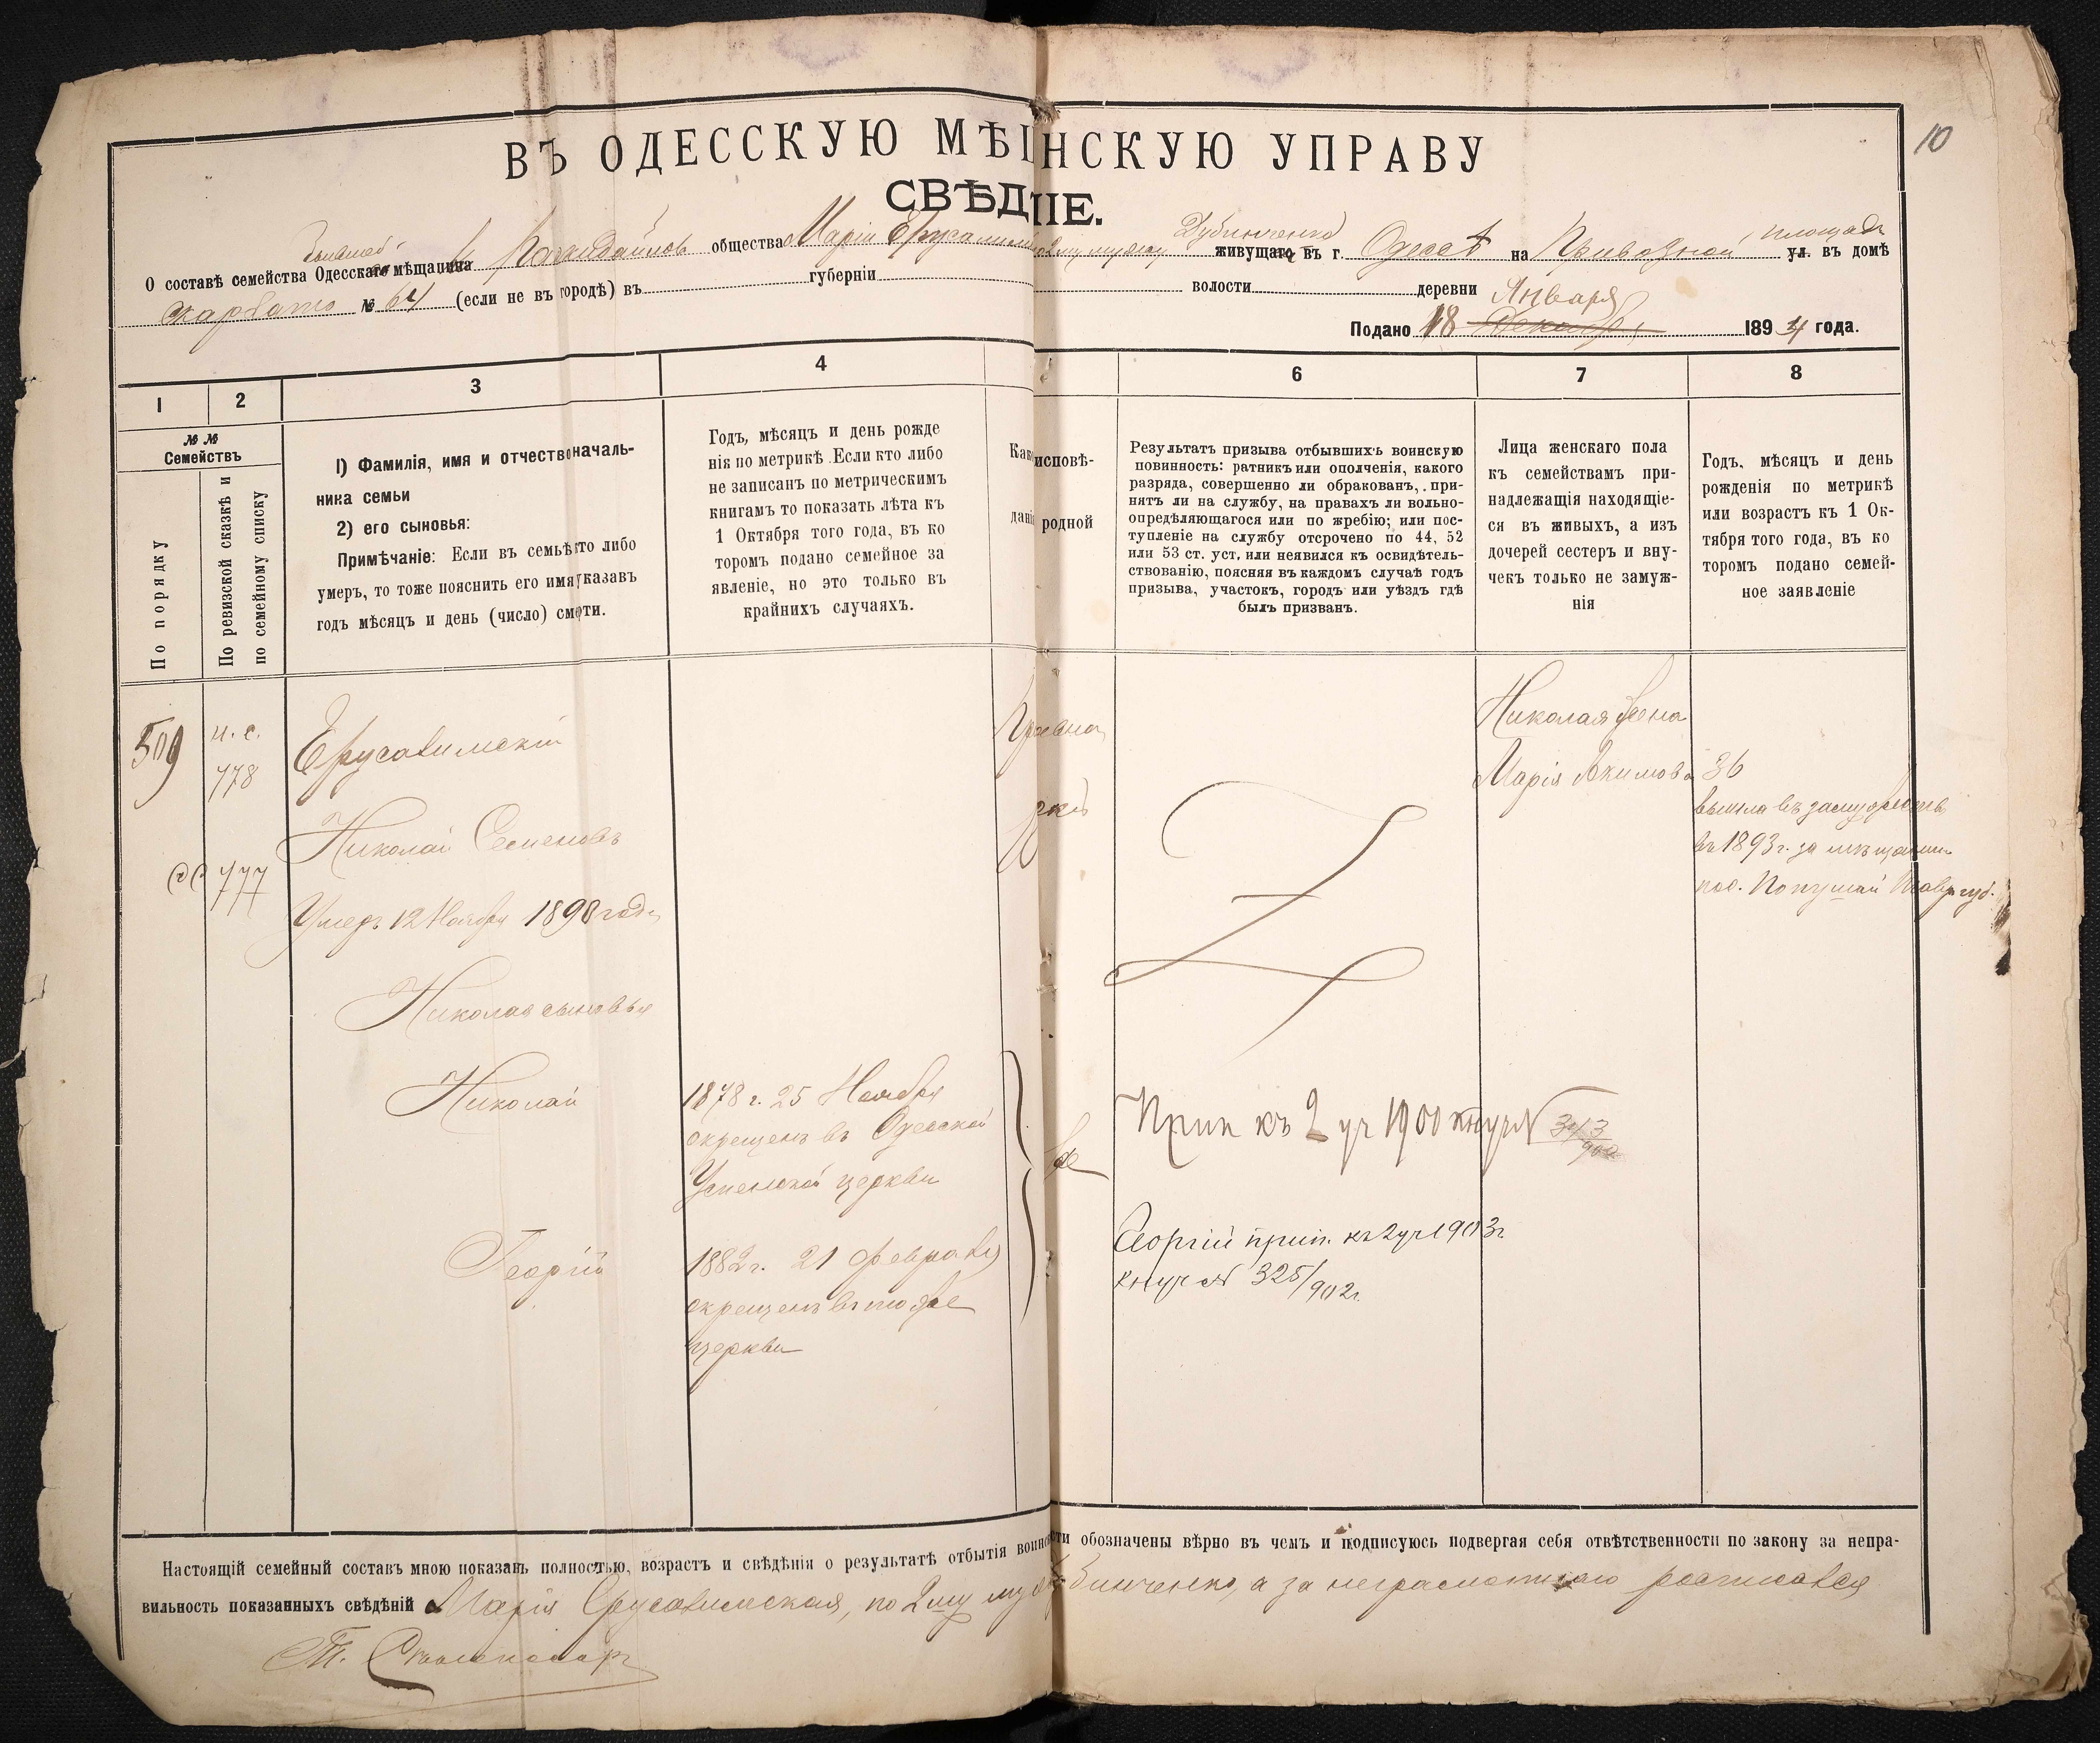 10
ВЪ ОДЕССКУЮ МѢЩНСКУЮ УПРАВУ
СВѢДНІЕ.
О составѣ семейства Одесскаго мѣщанина общества Маріи Ерусалимс 2му мужу Дубинченко живущаго въ г. Одессѣ на Привозной площади ул. въ домѣ
№ 64 (если не въ городѣ) въ губерніи волости деревни
Января
Подано 18 Декабря 1894 года.
1 2 3 4 6 7 8
№ № Семействъ
По порядку
По ревизской сказкѣ и по семейному списку
1) Фамилія, имя и отчество началь-
ника семьи
2) его сыновья:
Примѣчаніе: Если въ семьѣ кто либо
умеръ, то тоже пояснить его имя указавъ
годъ мѣсяцъ и день (число) смерти.
Годъ, мѣсяцъ и день рожде
нія по метрикѣ. Если кто либо
не записанъ по метрическимъ
книгамъ то показать лѣта къ
1 Октября того года, въ ко
торомъ подано семейное за
явленіе, но это только въ
крайнихъ случаяхъ.
Как исповѣ-
дані родной
Результатъ призыва отбывшихъ воинскую
повинность: ратникъ или ополченія, какого
разряда, совершенно ли обракованъ, при-
нятъ ли на службу, на правахъ ли вольно-
опредѣляющагося или по жребію; или пос-
тупленіе на службу отсрочено по 44, 52
или 53 ст. уст. или неявился къ освидѣтель-
ствованію, поясняя въ каждомъ случаѣ годъ
призыва, участокъ, городъ или уѣздъ гдѣ
былъ призванъ.
Лица женскаго пола
къ семействамъ при-
надлежащія находящіе-
ся въ живыхъ, а изъ
дочерей сестеръ и вну-
чекъ только не замуж-
нія
Годъ, мѣсяцъ и день
рожденія по метрикѣ
или возрастъ къ 1 Ок-
тября того года, въ ко
торомъ подано семей-
ное заявленіе
509
н. с.
778
777
Ерусалимскій
Николай Семеновъ
Умеръ 12 Ноября 1890 года
Николая сыновья
Николай
1878 г. 25 Ноября
окрещенъ въ Одесской
Успенской церкви
Георгій
1882 г. 21 февраля
окрещенъ въ той же
церкви
Прип къ 2 уч 1900 №
343/900
Георгій прип. къ 2 уч 1903 г.
№ 325/902 г.
Николая жена
Марія Акимова
36
вышла въ замужество
въ 1893 г. за мѣщанин
Настоящій семейный составъ мною показанъ полностью, возрастъ и свѣдѣнія о результатѣ отбытія воинсти обозначены вѣрно въ чемъ и подписуюсь подвергая себя отвѣтственности по закону за непра-
вильность показанныхъ свѣдѣній Марія Ерусалимская, по 2му муж бинченко, а за неграмотную росписался